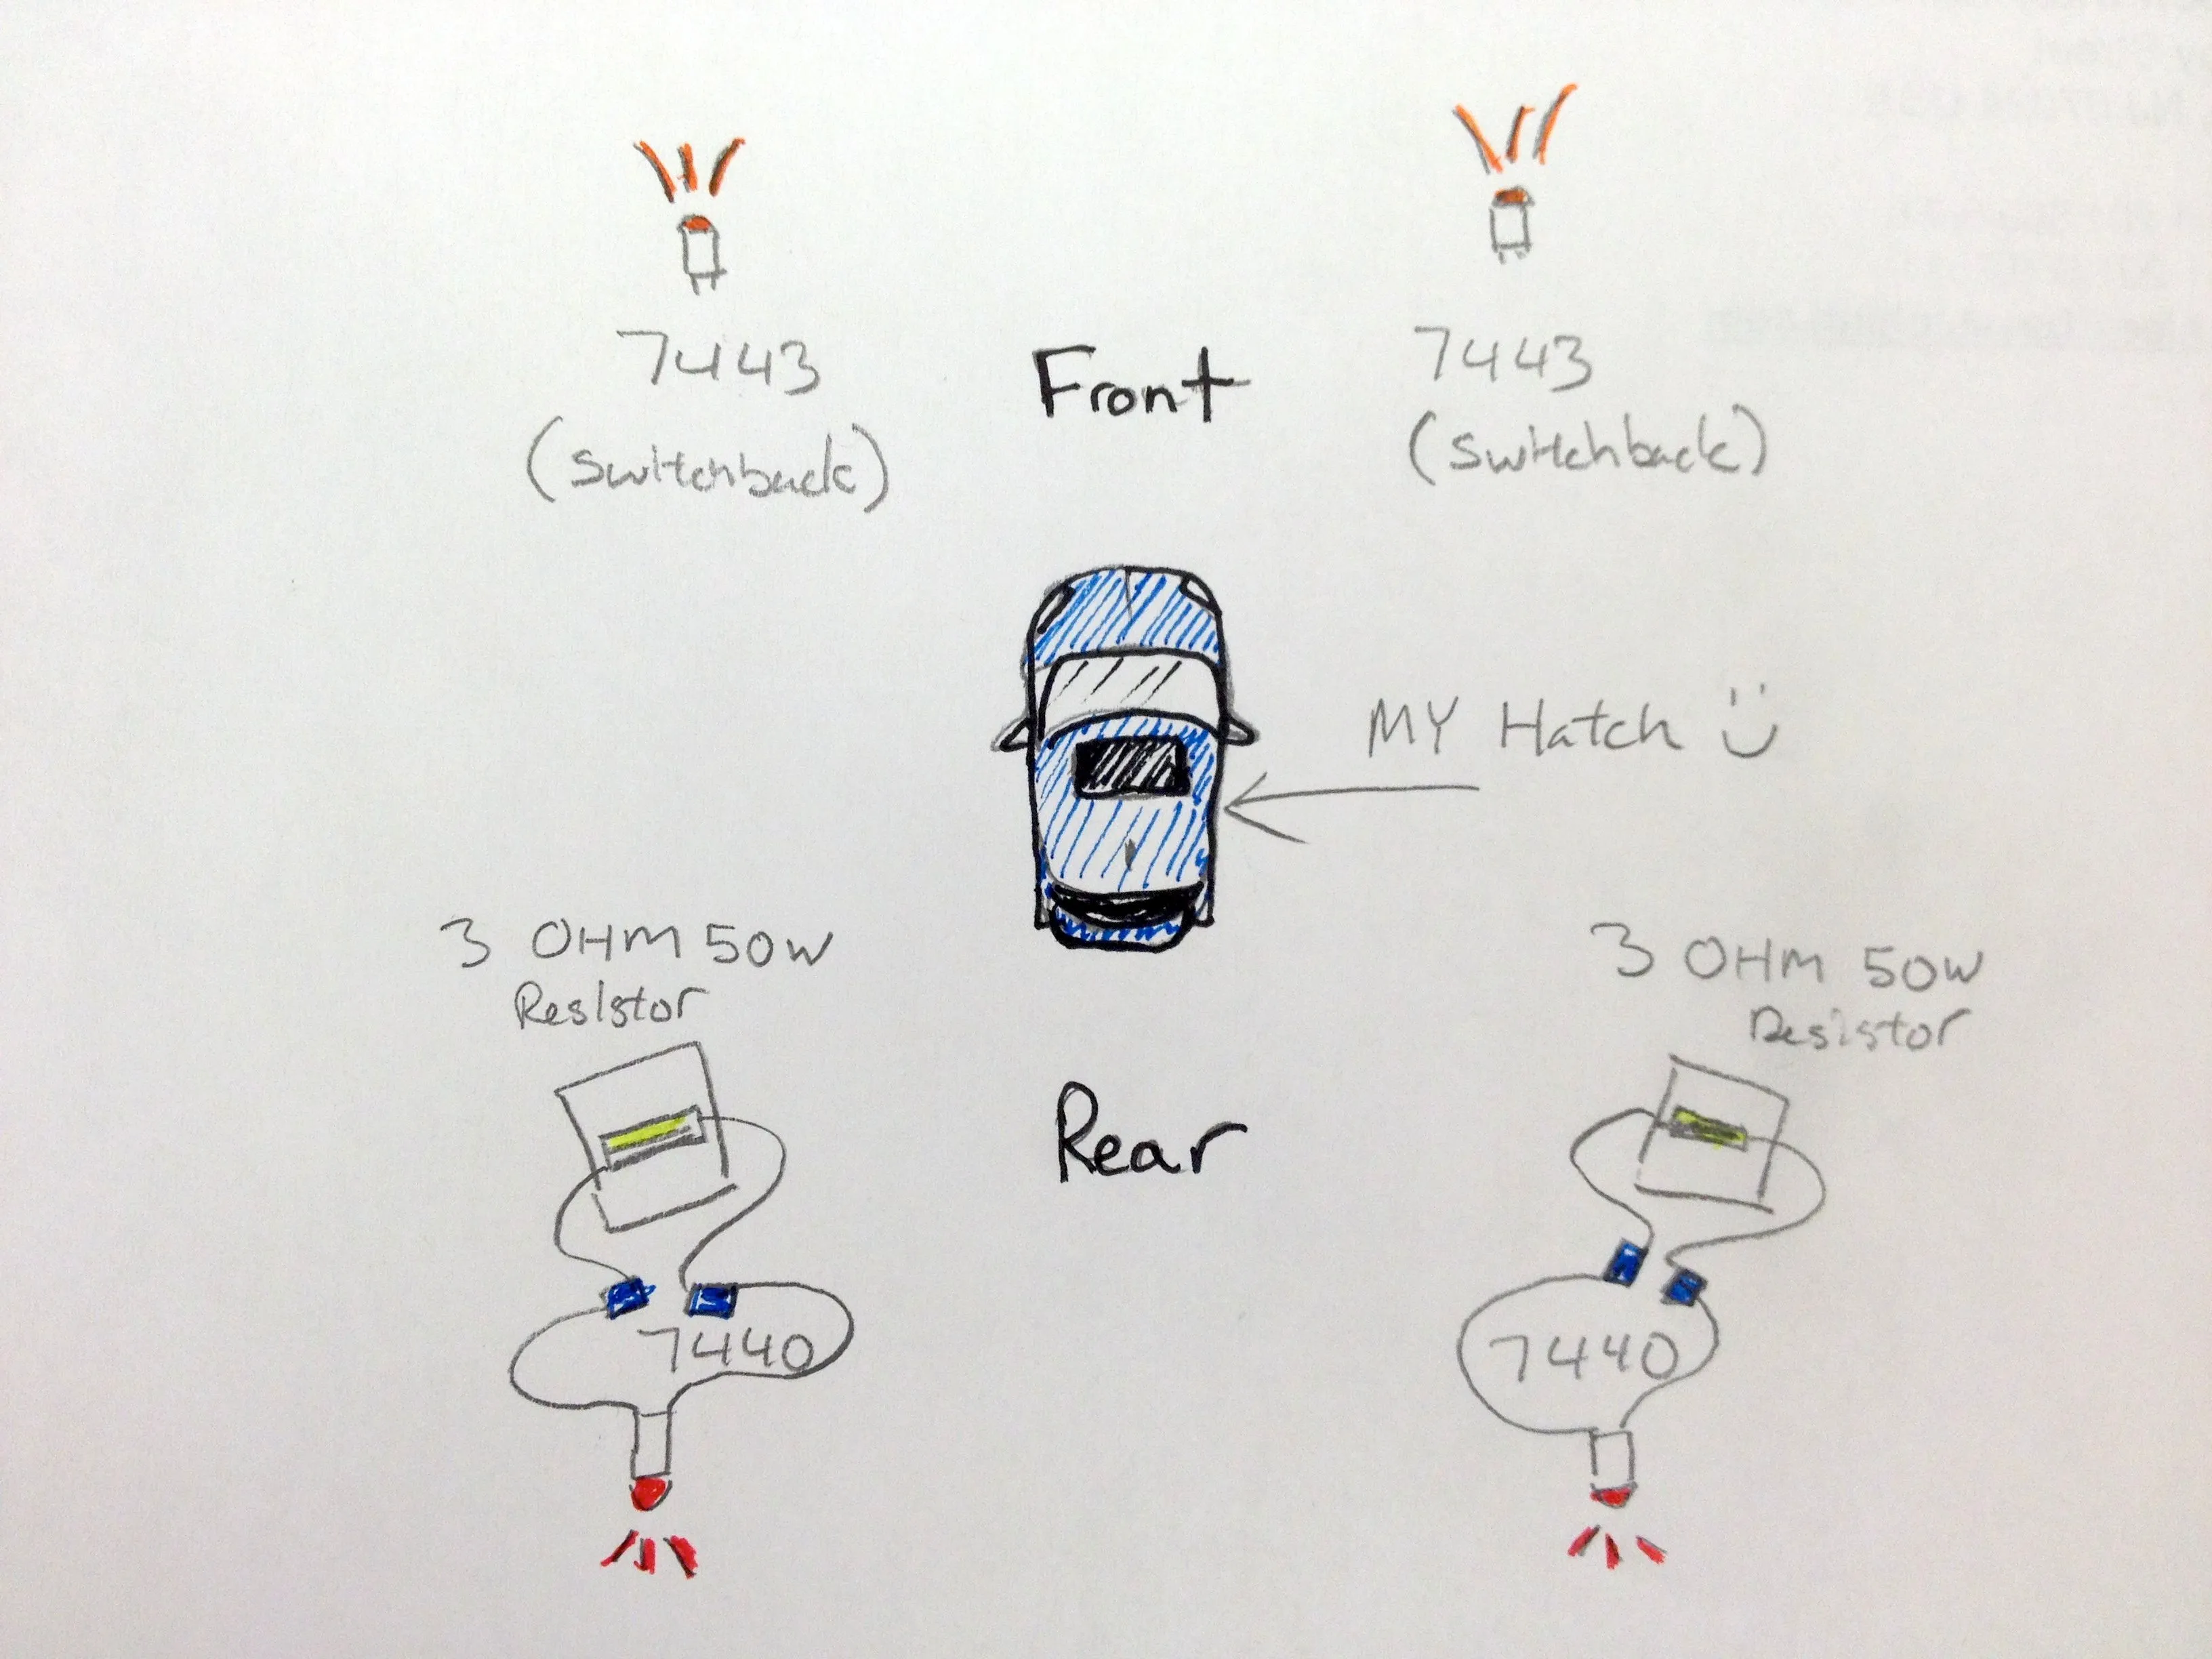 7443
(switchback)
Front
7443
(switchback)
MY Hatch
3 OHM 50W
Resistor
3 OHM 50W
Resistor
Rear
7440
7440